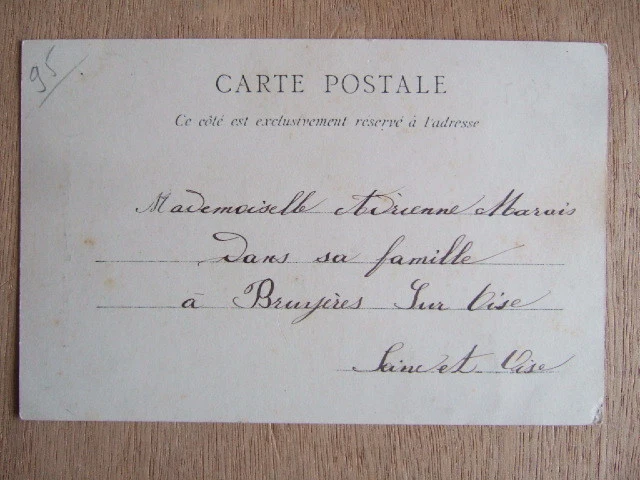 95
CARTE POSTALE
Ce côté est exclusivement reservé à l'adresse
Mademoiselle Adrienne Marais
Dans sa famille
à Bruyères Sur Oise
Seine et Oise